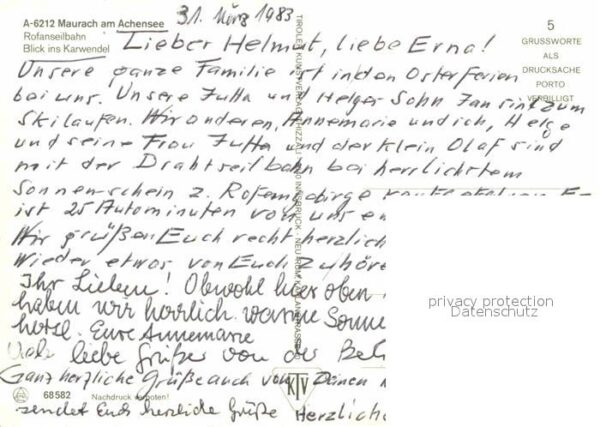 A-6212 Maurach am Achensee
Rofanseilbahn
Blick ins Karwendel
31. März 1983
5
GRUSSWORTE
ALS
DRUCKSACHE
PORTO
VERBILLIGT
Lieber Helmut, liebe Erna!
Unsere ganze Familie ist in den Osterferien
bei uns. Unsere Jutta und Helges Sohn Jan sind zum
Skilaufen. Wir anderen, Annemarie und ich, Helge
und seine Frau Jutta und der klein Olaf sind
mit der Drahtseilbahn bei herrlichstem
Sonnenschein z. Rofengebirge
ist 25 Autominuten von uns
Wir grüßen Euch recht herzlich
Wieder etwas von Euch zu höre
Ihr Lieben! Obwohl hier oben
haben wir herrlich warme Sonne
hotel. Eure Annemarie
liebe Grüße von der
Ganz herzliche Grüße auch von
sendet Euch herzliche Grüße Herzliche
68 582 Nachdruck verboten!
KTV
privacy protection
Datenschutz